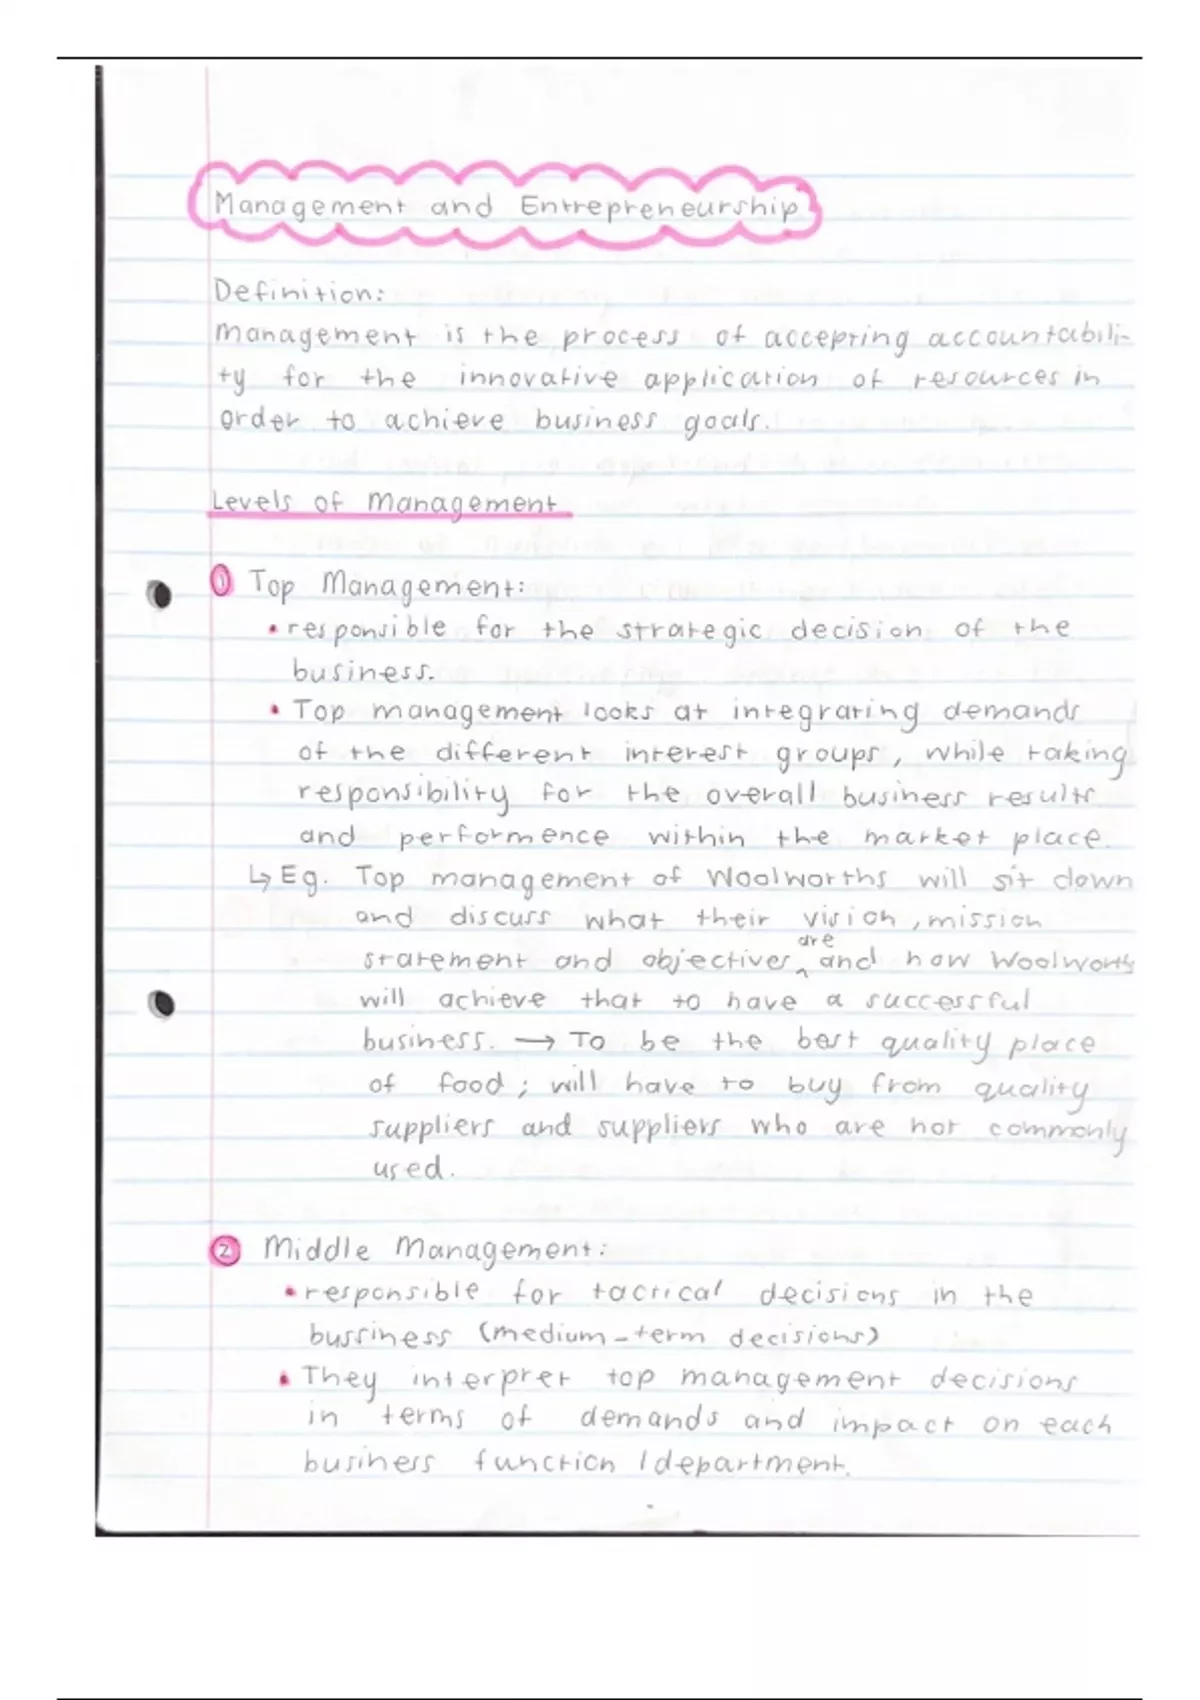 Management and Entrepreneurship
Definition:
Management is the process of accepting accountabili-
ty for the innovative application of resources in
order to achieve business goals.
Levels of Management
① Top Management:
• responsible for the strategic decision of the
business.
• Top management looks at integrating demands
of the different interest groups, while taking
responsibility for the overall business results
and performence within the market place.
↳ Eg. Top management of Woolworths will sit down
and discuss what their vision, mission
are
statement and objectives ^ and how Woolworths
will achieve that to have a successful
business. → To be the best quality place
of food; will have to buy from quality
suppliers and suppliers who are not commonly
used.
② Middle Management:
• responsible for tactical decisions in the
bussiness (medium-term decisions)
• They interpret top management decisions
in terms of demands and impact on each
business function /department.